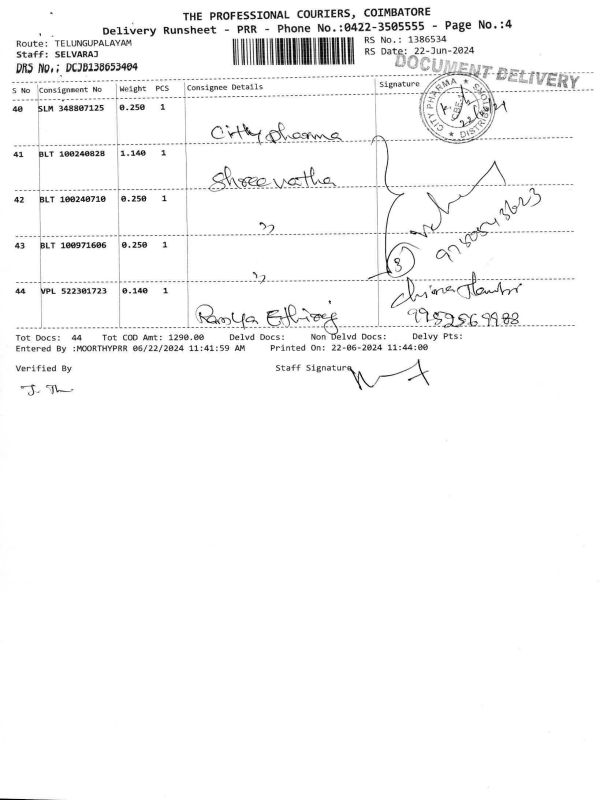 THE PROFESSIONAL COURIERS, COIMBATORE
Delivery Runsheet - PRR - Phone No.:0422-3505555 - Page No.:4
Route: TELUNGUPALAYAM RS No.: 1386534
Staff: SELVARAJ RS Date: 22-Jun-2024
DRS No.: DCJB138653404 DOCUMENT DELIVERY
S No Consignment No Weight PCS Consignee Details Signature
CITY PHARMA DISTRIBUTORS CBE
40 SLM 348807125 0.250 1
Citty pharma
41 BLT 100240828 1.140 1
Shree vatha
42 BLT 100240710 0.250 1
"
43 BLT 100971606 0.250 1
3
"
44 VPL 522301723 0.140 1
Ramya Ethiraj 9952569988
Tot Docs: 44 Tot COD Amt: 1290.00 Delvd Docs: Non Delvd Docs: Delvy Pts:
Entered By :MOORTHYPRR 06/22/2024 11:41:59 AM Printed On: 22-06-2024 11:44:00
Verified By Staff Signature